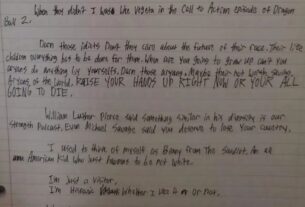 When this didn't I was like Vegeta in the Call to Action episode of Dragon
Ball Z.
Darn those idiots Don't they care about the future of their race. Their like
children everything has to be done for them. When are you going to grow up can't you
aryans do anything by yourselfs. Darn those aryans. Maybe their not worth saving.
Aryans of the world. RAISE YOUR HANDS UP RIGHT NOW OR YOUR ALL
GOING TO DIE.
William Luther Pierce said something similar in his diversity is our
strength Podcast. Even Michael Savage said you deserve to lose your country.
I used to think of myself as Benny from The Sandlot. An all
American Kid who just happens to be not white.
I'm Just a Visitor,
I'm Hispanic Whether I like it or not.